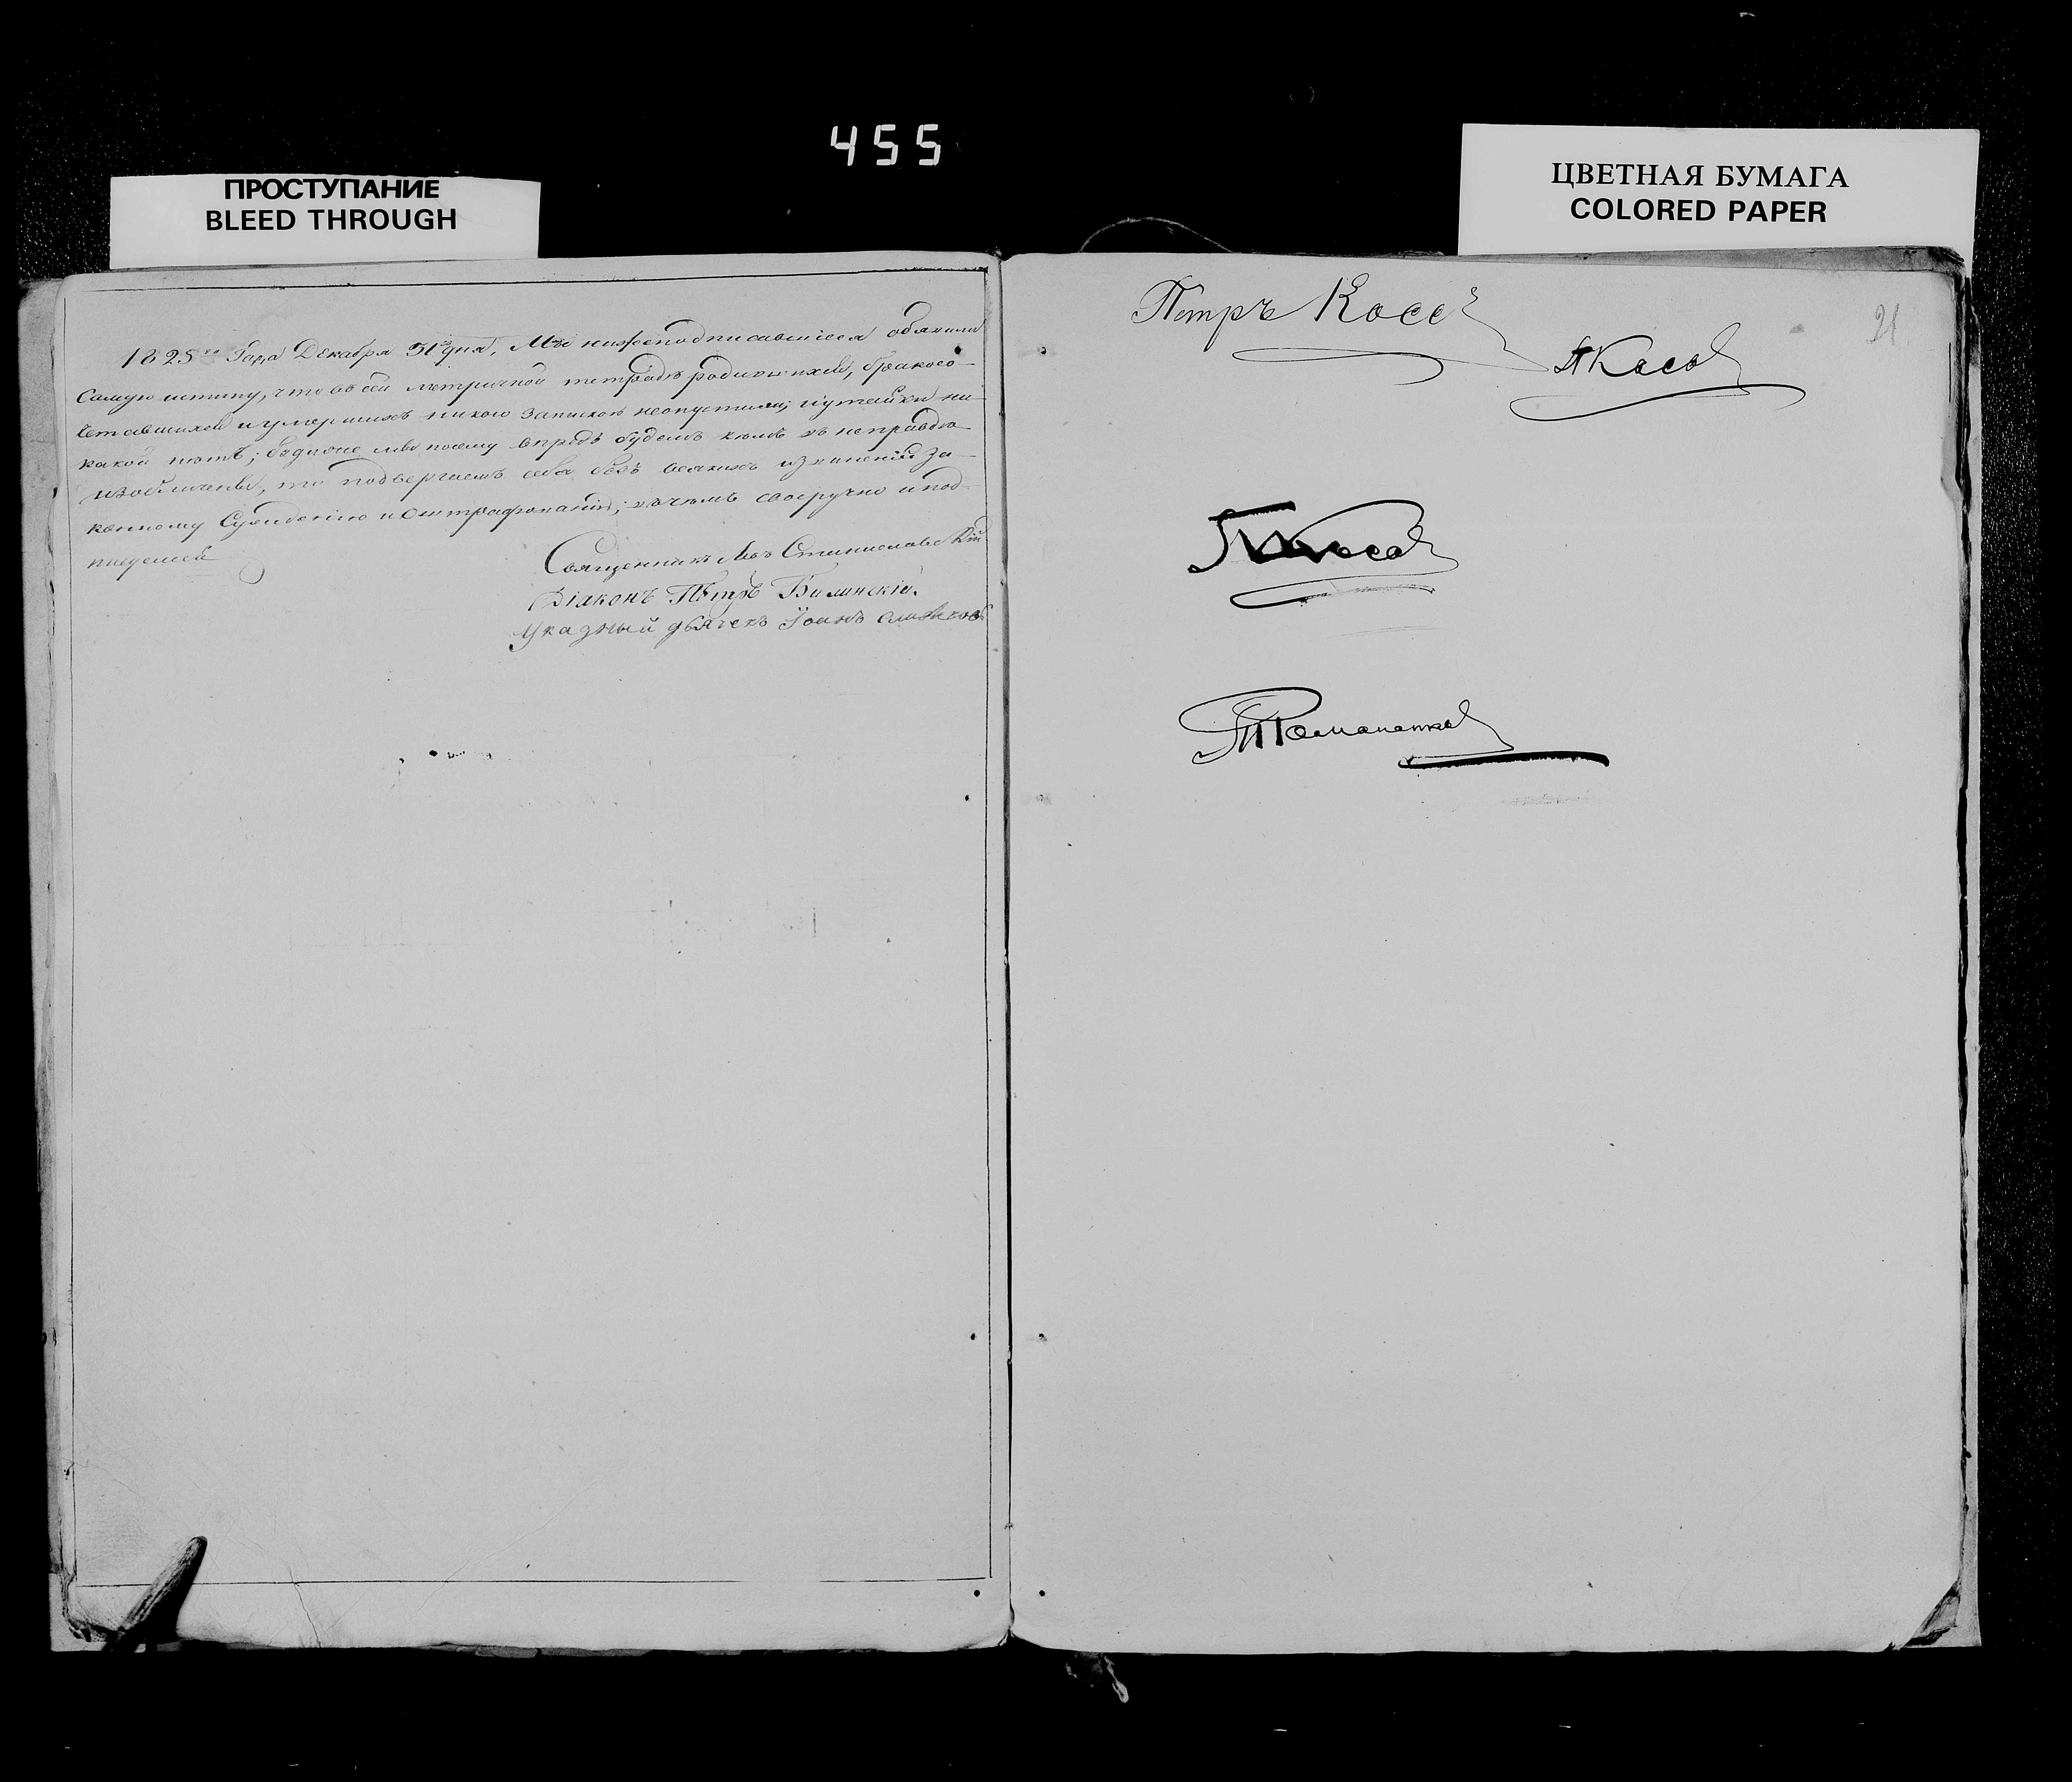 455
ПРОСТУПАНИЕ
BLEED THROUGH
ЦВЕТНАЯ БУМАГА
COLORED PAPER
1825го Года Декабря 31го дня, Мы нижеподписавшiеся объявили
самую истину, что въ сей метричной тетрадѣ родившихся, бракосо-
четавшихся и умершихъ никого запискою неопустили; и утайки ни-
какой нѣтъ; буде посему впредь будемъ кѣмъ въ неправдѣ
изобличены, то подвергаемъ себя безъ всякихъ извиненiй за-
конному Сужденiю и Оштрафованiю; въ чемъ своеручно и под-
писуемся
Священникъ Левъ Станиславскiй
Дiяконъ Петръ Билинскiй
Указный дьячекъ Iоанъ
21
Петръ Косс
П Косов
Косов
П Романенков